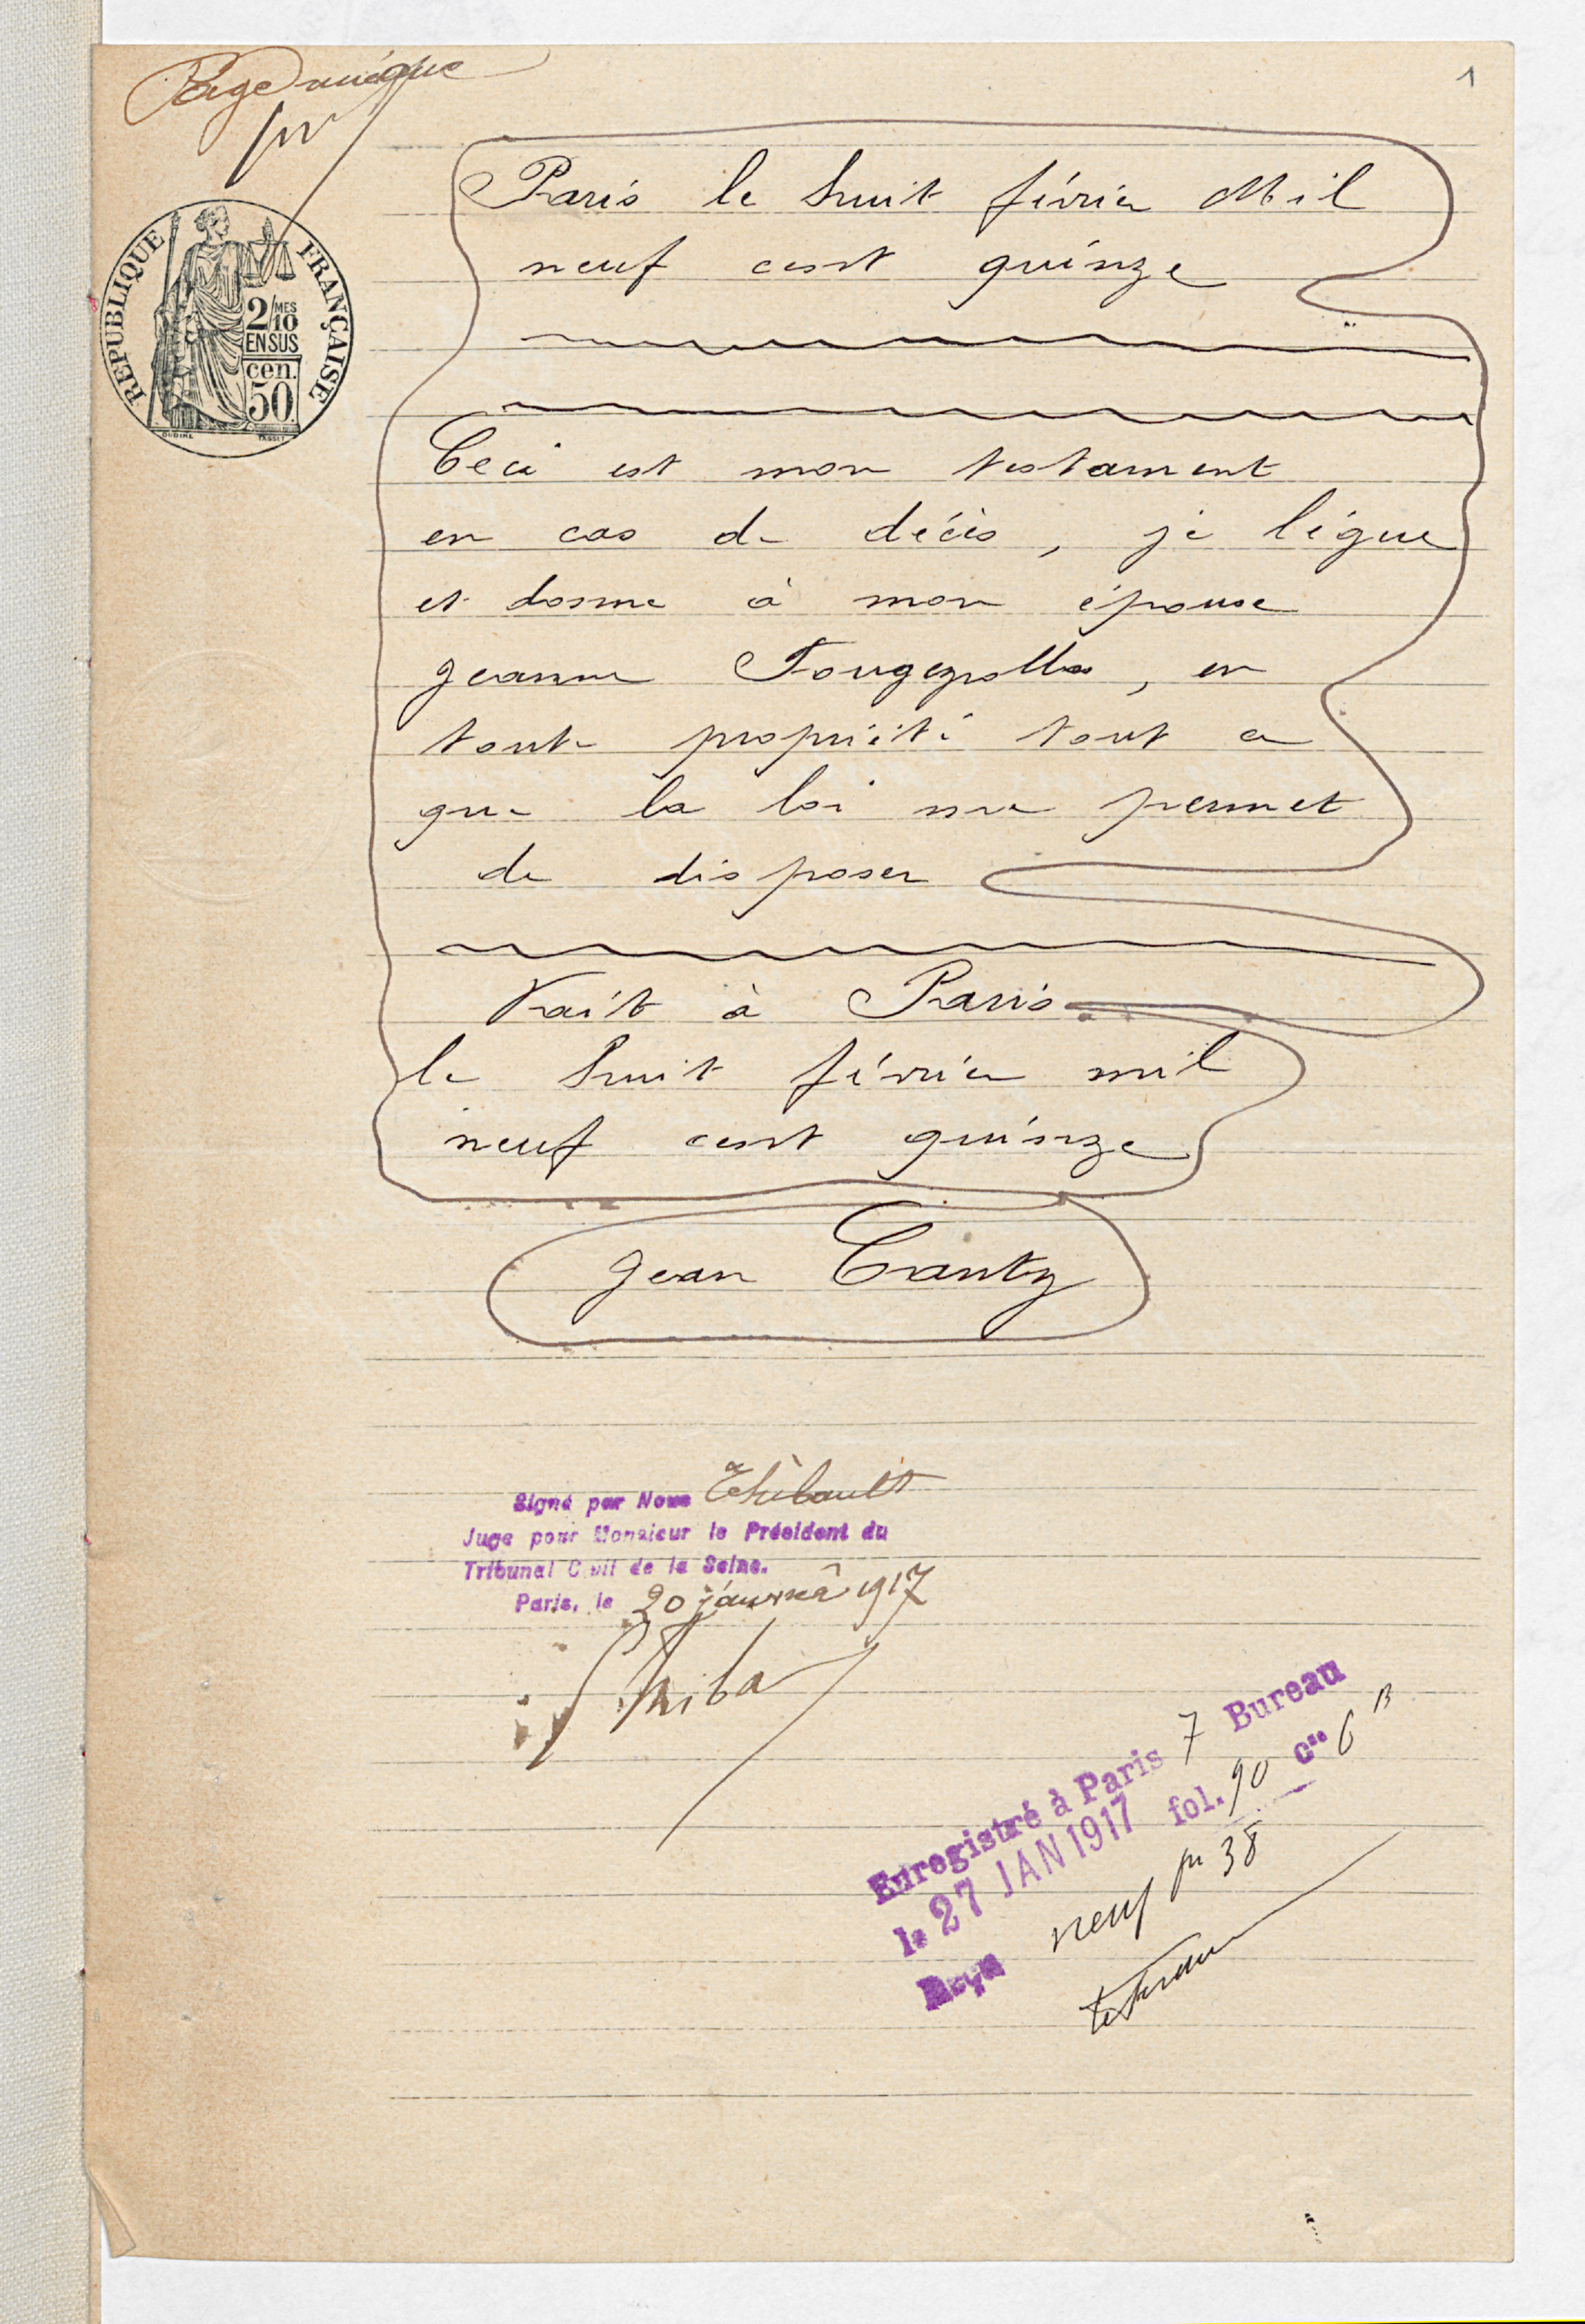 Page unique
1
RÉPUBLIQUE FRANÇAISE
2/10 MES
EN SUS
cen.
50
Paris le huit février Mil
neuf cent quinze
Ceci est mon testament
en cas de décès, je lègue
et donne à mon épouse
Jeanne Fougerolles, en
toute propriété tout ce
que la loi me permet
de disposer
Fait à Paris
le huit février mil
neuf cent quinze
Jean Canty
Signé par Nous Thibault
Juge pour Monsieur le Président du
Tribunal Civil de la Seine.
Paris, le 20 janvier 1917
Enregistré à Paris 7 Bureau
le 27 JAN 1917 fol. 90 Cse 6
Reçu neuf 38